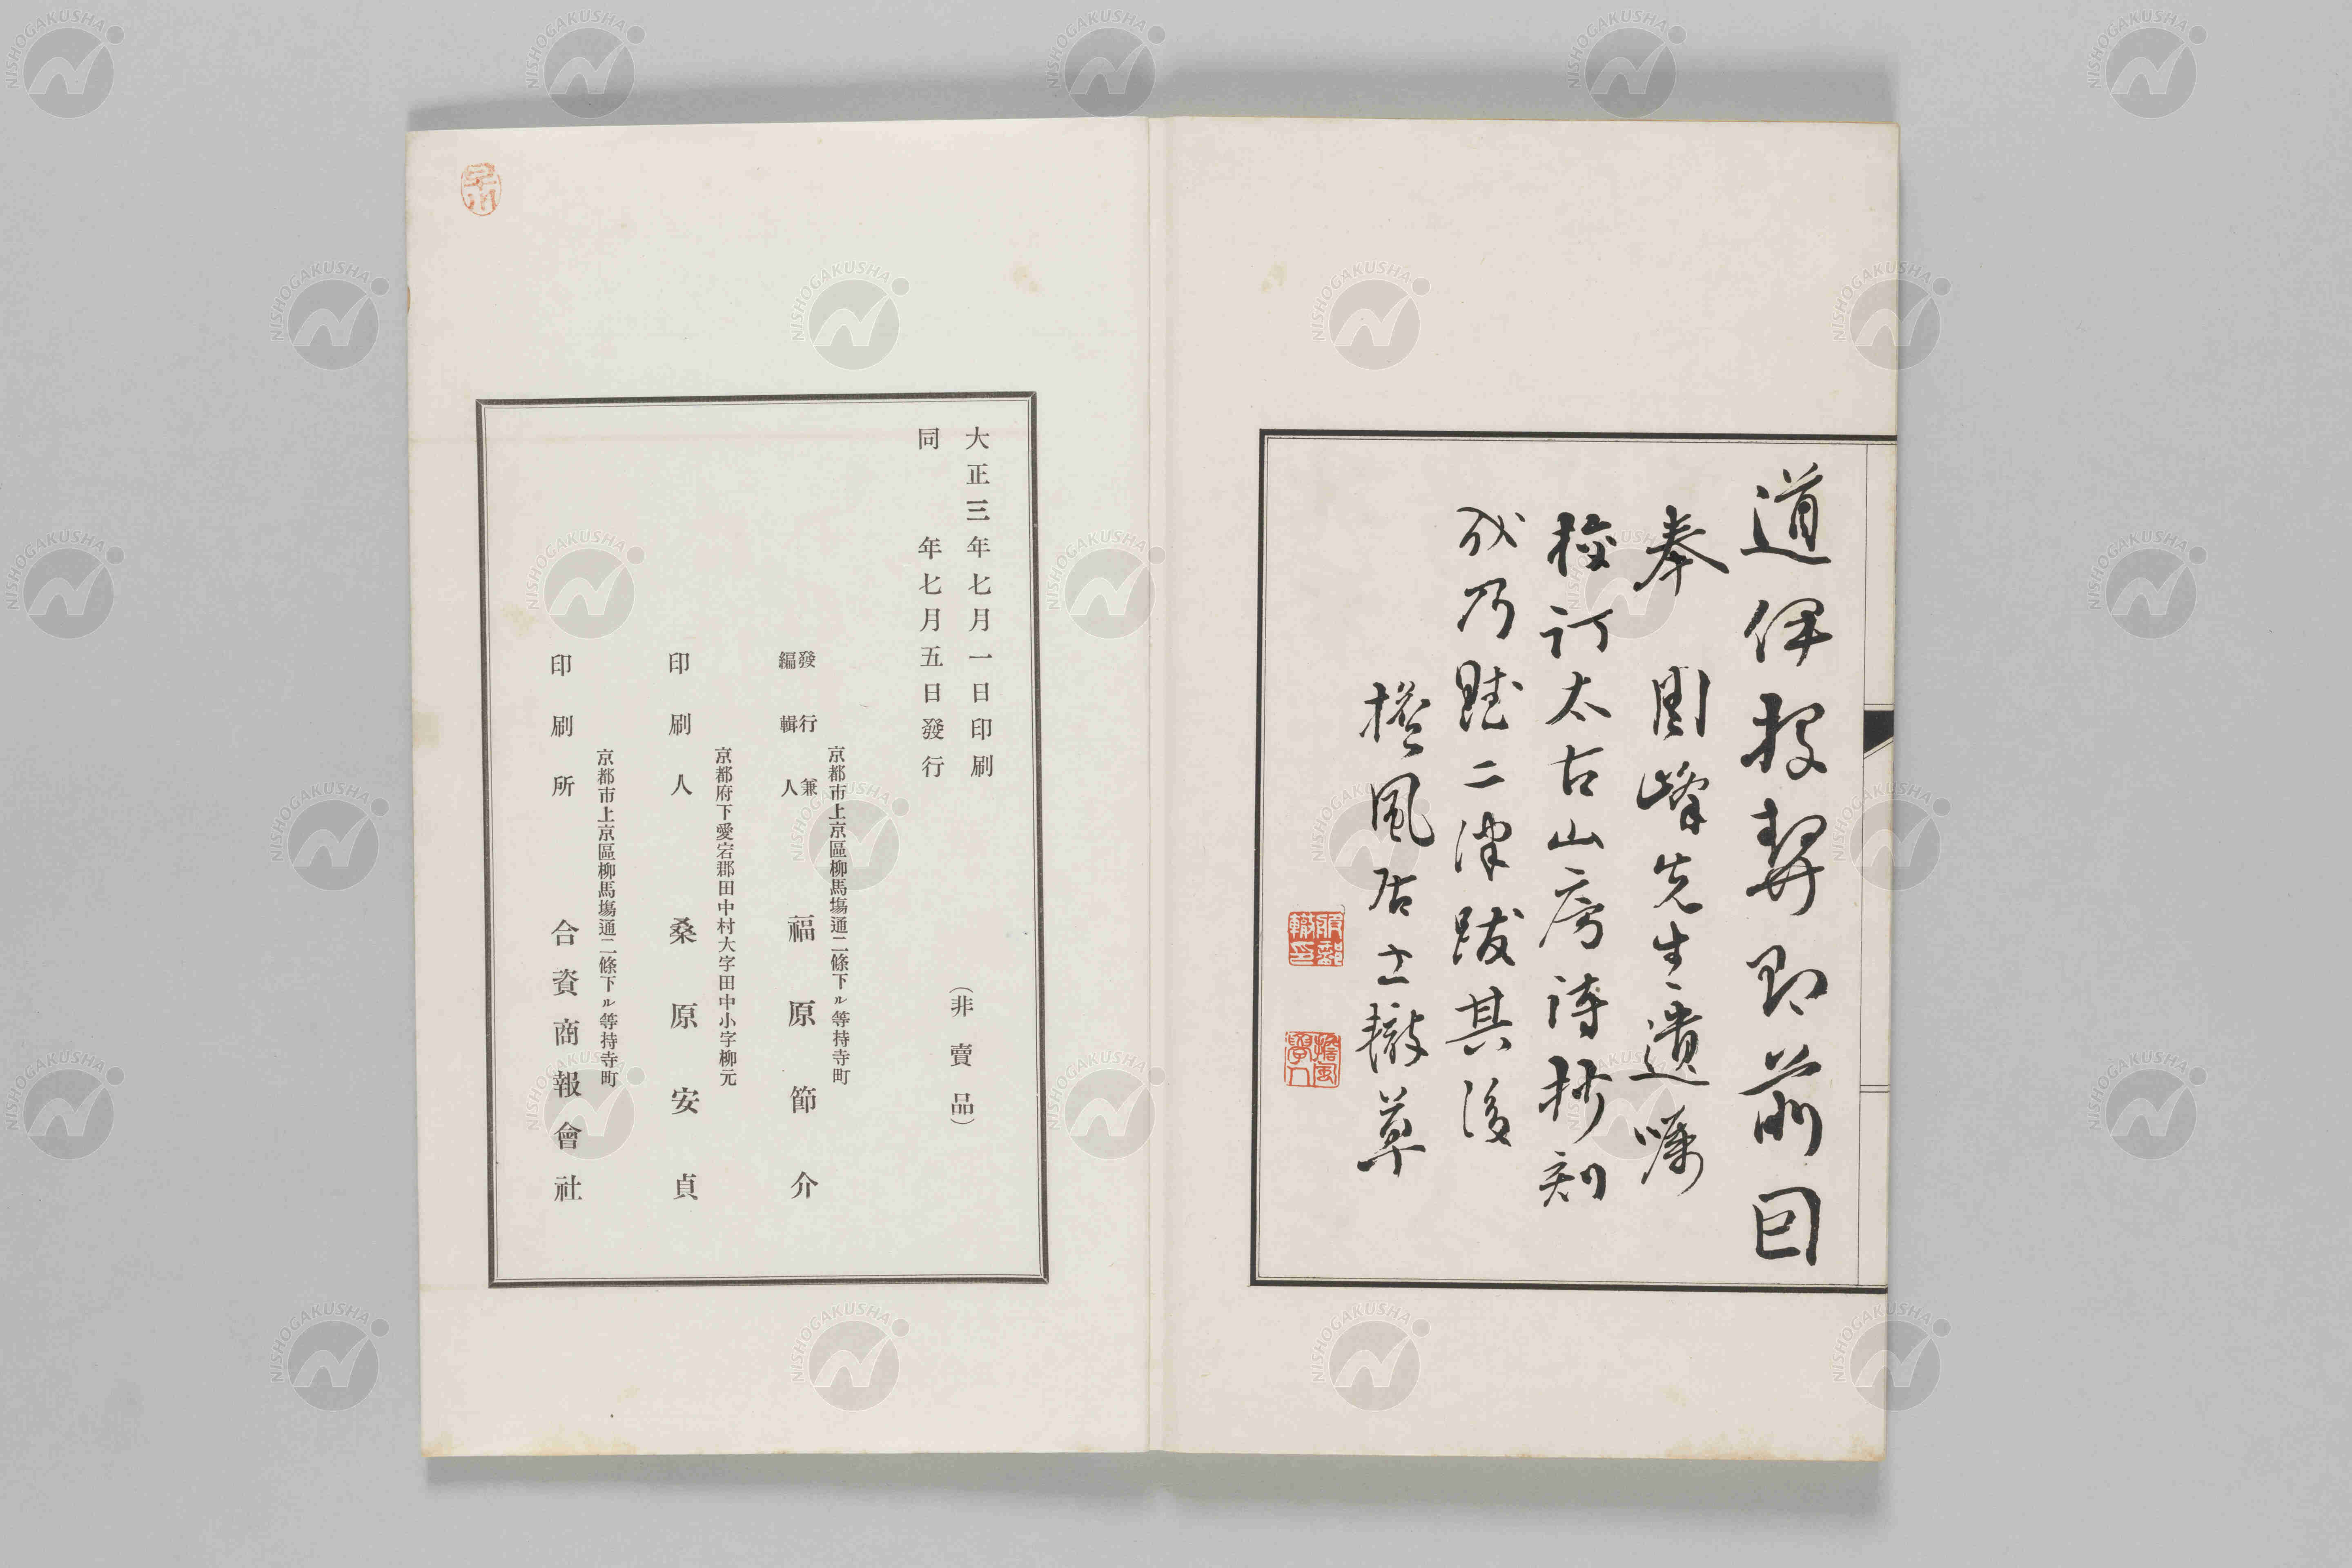 道伴投契即前因
奉 周峰先生遺囑
校訂太古山房詩抄刻
成乃賦二律跋其後
擔風居士轍草
服部轍印
擔風學人
大正三年七月一日印刷
同 年七月五日發行
(非賣品)
京都市上京區柳馬場通二條下ル等持寺町
發行兼
編輯人 福原節介
京都府下愛宕郡田中村大字田中小字柳元
印刷人 桑原安貞
京都市上京區柳馬場通二條下ル等持寺町
印刷所 合資商報會社
NISHOGAKUSHA